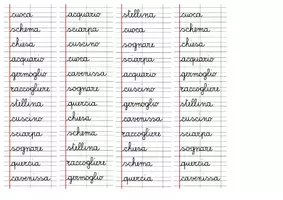 cuoca acquario stellina cuoca
schema sciarpa cuoca schema
chiesa cuscino sognare chiesa
acquario cuoca sciarpa acquario
germoglio cavenissa acquario germoglio
raccogliere sognare cuscino raccogliere
stellina quercia germoglio stellina
cuscino chiesa cavenissa cuscino
sciarpa schema raccogliere sciarpa
sognare stellina chiesa sognare
quercia raccogliere schema quercia
cavenissa germoglio quercia cavenissa